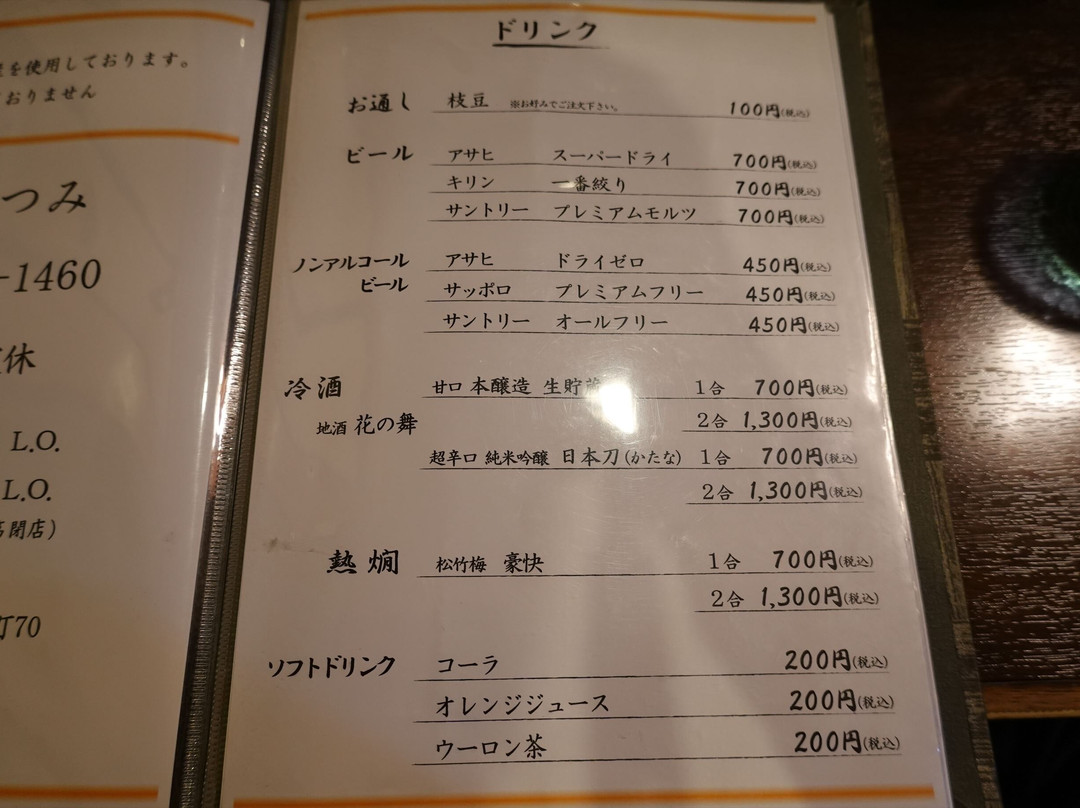 を使用しております。
おりません
つみ
-1460
休
L.O.
L.O.
閉店)
町70
ドリンク
お通し 枝豆 ※お好みでご注文下さい。 100円(税込)
ビール アサヒ スーパードライ 700円(税込)
キリン 一番絞り 700円(税込)
サントリー プレミアムモルツ 700円(税込)
ノンアルコール アサヒ ドライゼロ 450円(税込)
ビール サッポロ プレミアムフリー 450円(税込)
サントリー オールフリー 450円(税込)
冷酒 甘口 本醸造 生貯 1合 700円(税込)
地酒 花の舞 2合 1,300円(税込)
超辛口 純米吟醸 日本刀(かたな) 1合 700円(税込)
2合 1,300円(税込)
熱燗 松竹梅 豪快 1合 700円(税込)
2合 1,300円(税込)
ソフトドリンク コーラ 200円(税込)
オレンジジュース 200円(税込)
ウーロン茶 200円(税込)